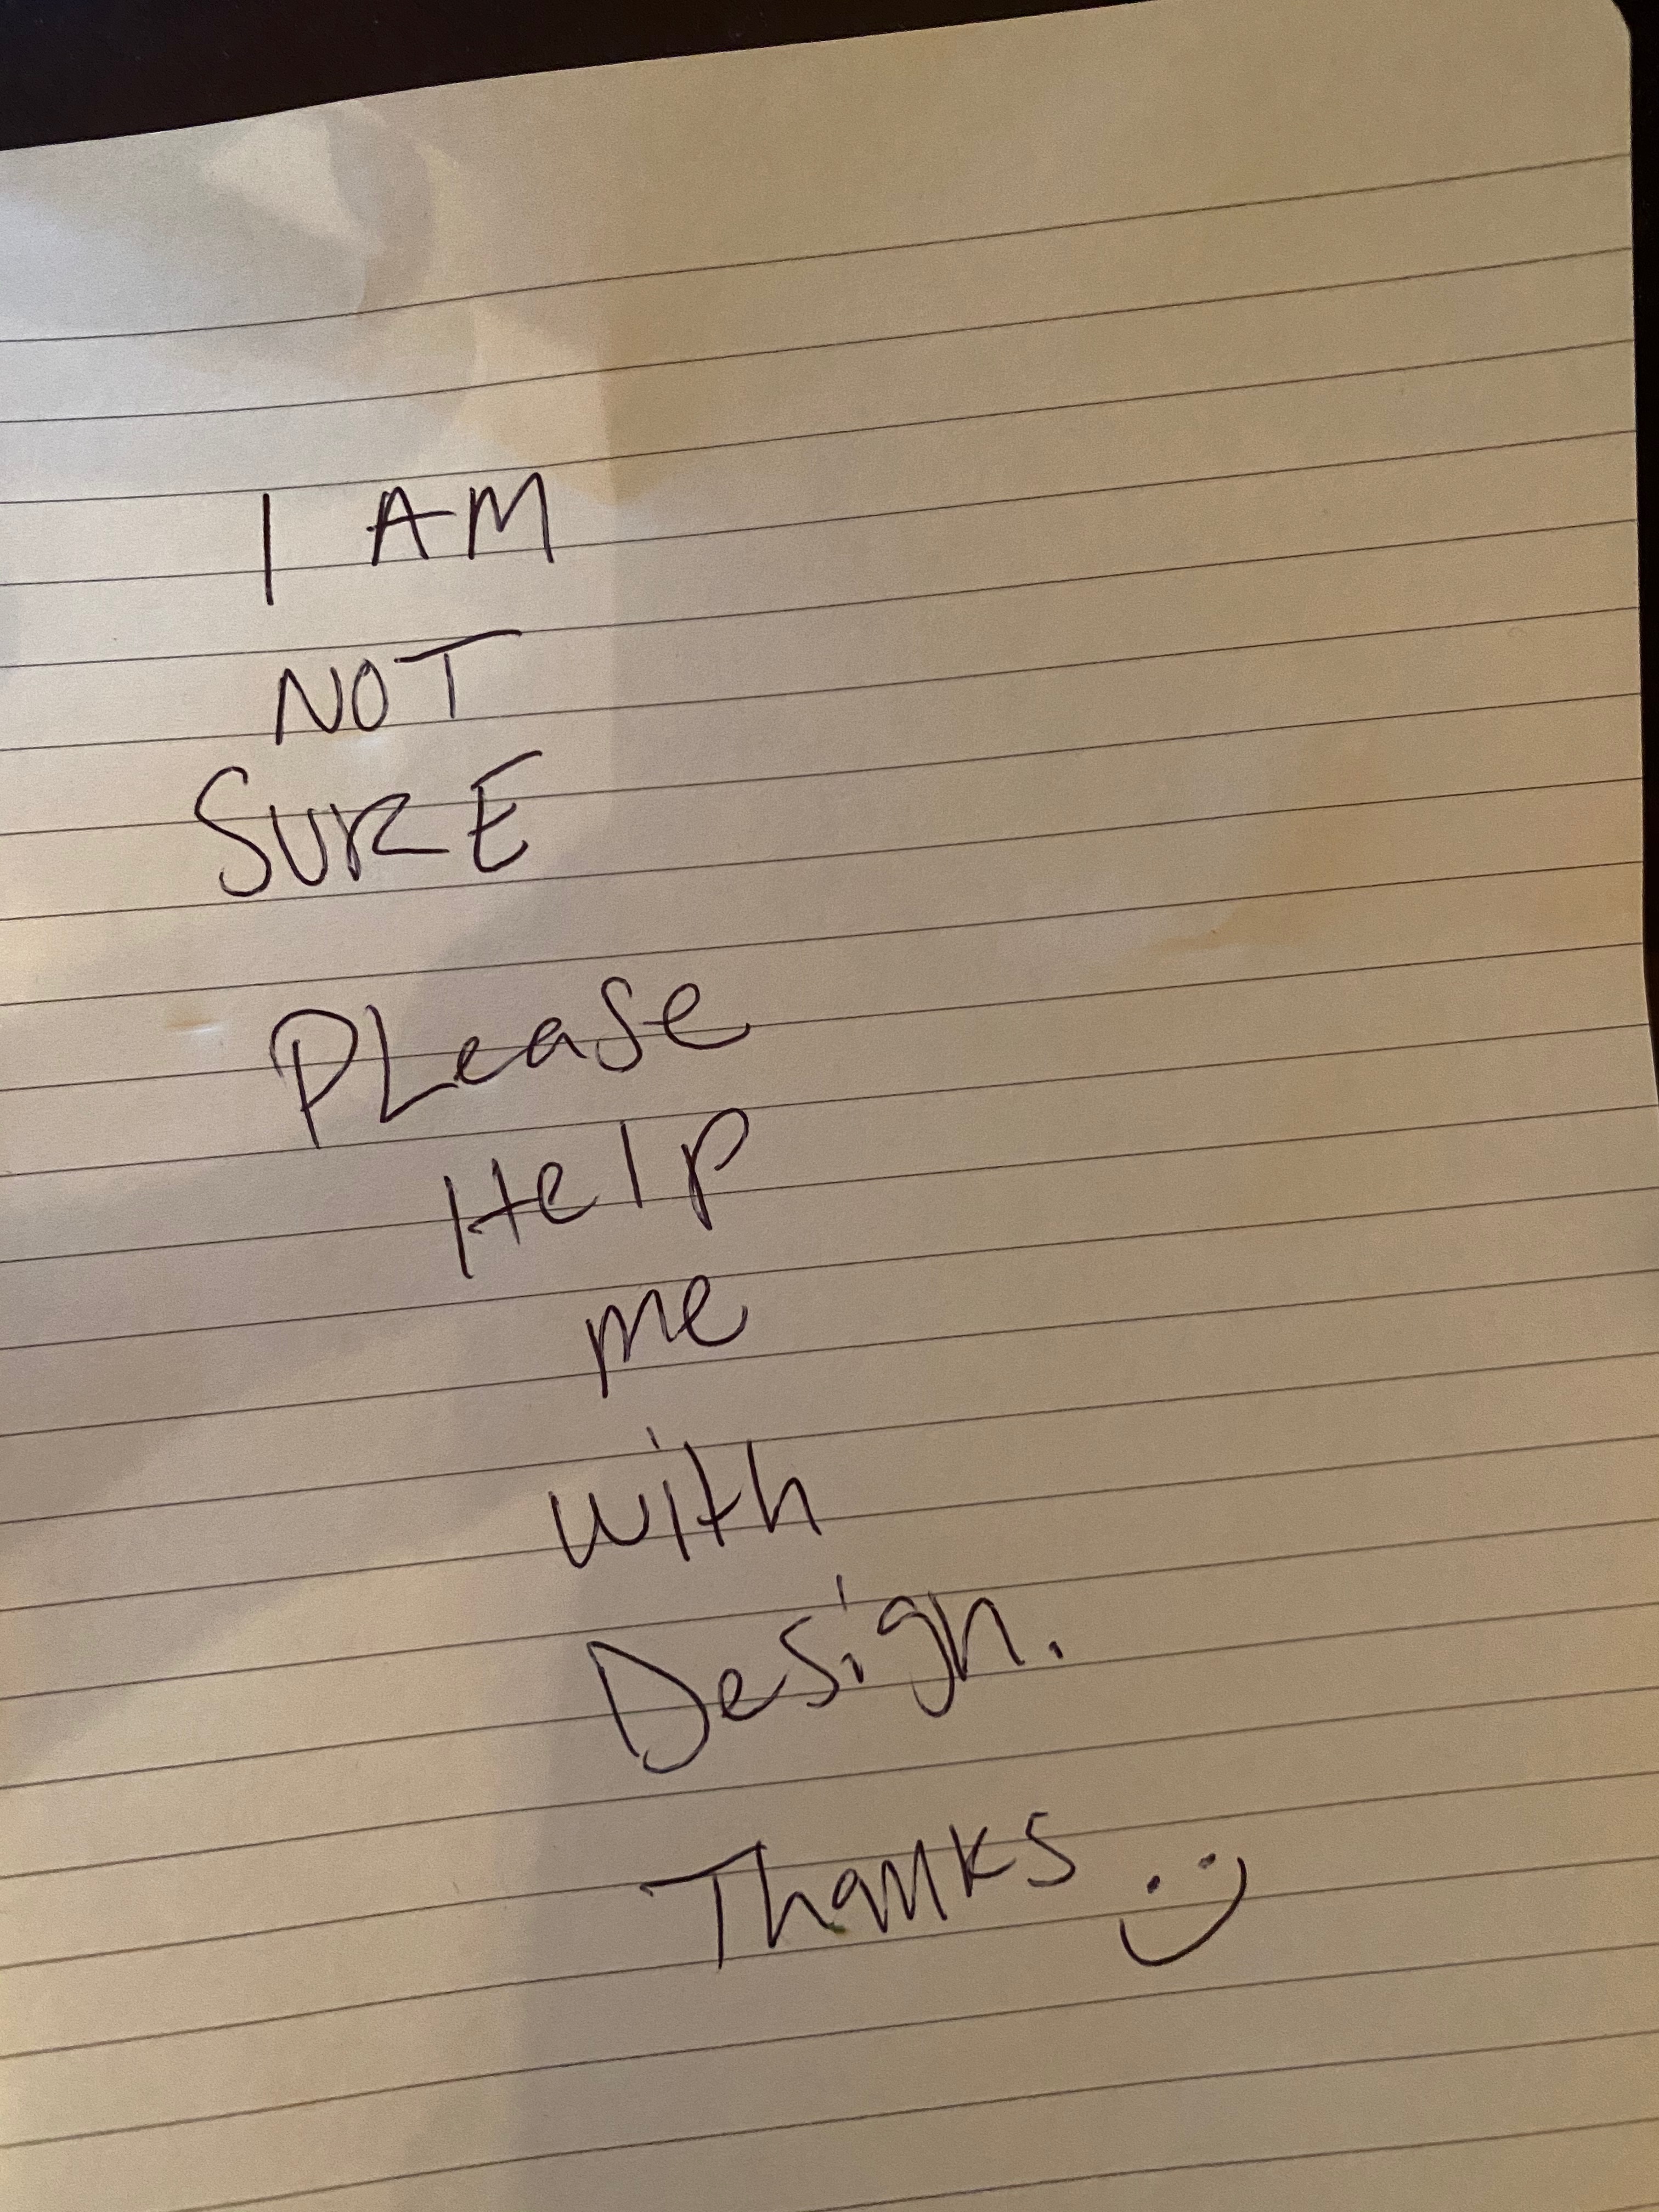 I AM
NOT
SURE
PLease
Help
me
with
Design.
Thanks :)